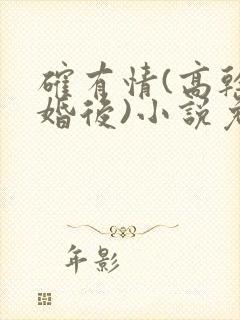 確有情(高幹
婚後)小說免
年影